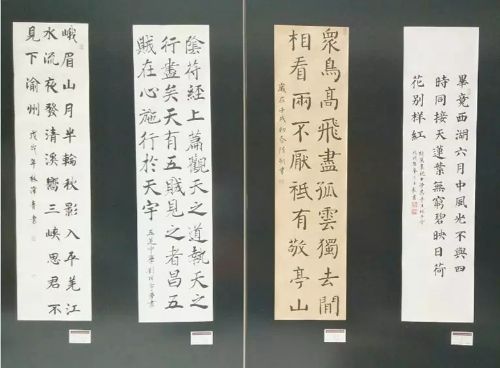 畢竟西湖六月中風光不與四
時同接天蓮葉無窮碧映日荷
花別样紅
衆鳥高飛盡孤雲獨去閒
相看兩不厭祗有敬亭山
陰符經上篇觀天之道執天之
行盡矣天有五賊見之者昌五
賊在心施行於天宇
峨眉山月半輪秋影入平羌江
水流夜發清溪嚮三峽思君不
見下渝州
戊戌年秋